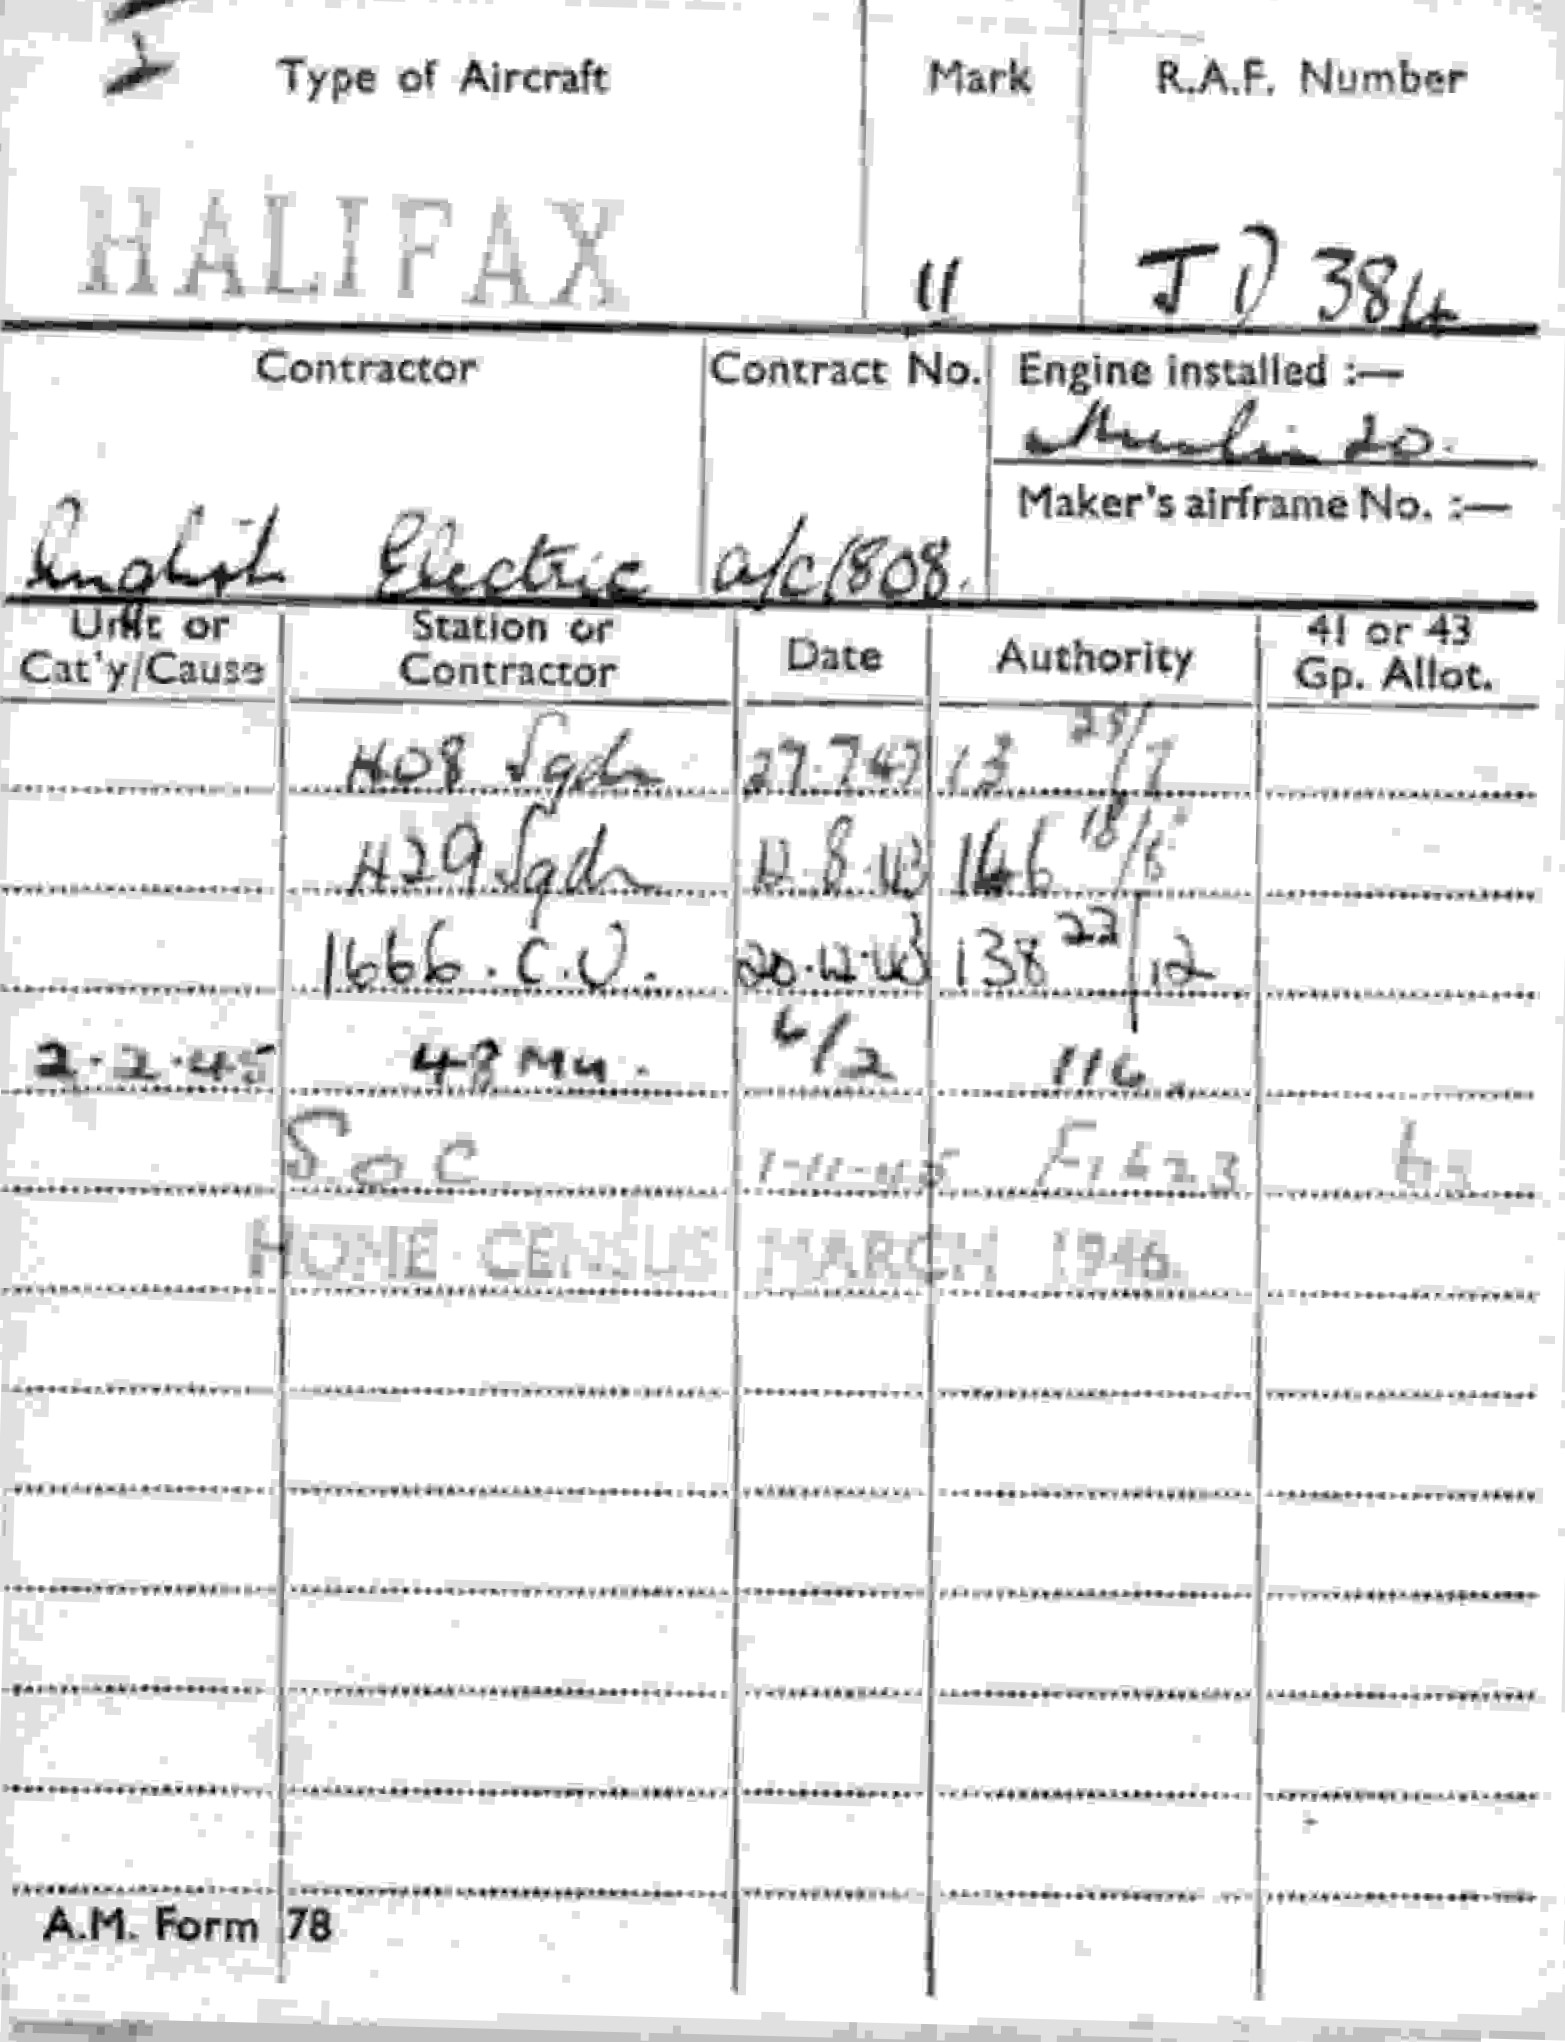 Type of Aircraft Mark R.A.F. Number
HALIFAX 11 JD 384
Contractor Contract No. Engine installed :—
Merlin 20.
Maker's airframe No. :—
English Electric a/c/808.
Unit or Station or Date Authority 41 or 43
Cat'y/Cause Contractor Gp. Allot.
408 Sqdn 27.7.43 13 28/7
429 Sqdn 12.8.43 146 18/8
1666. C.U. 20.12.43 138 22/12
2.2.45 48 Mu. 6/2 116.
S.O.C 1-11-45 F1623
HOME CENSUS MARCH 1946.
A.M. Form 78